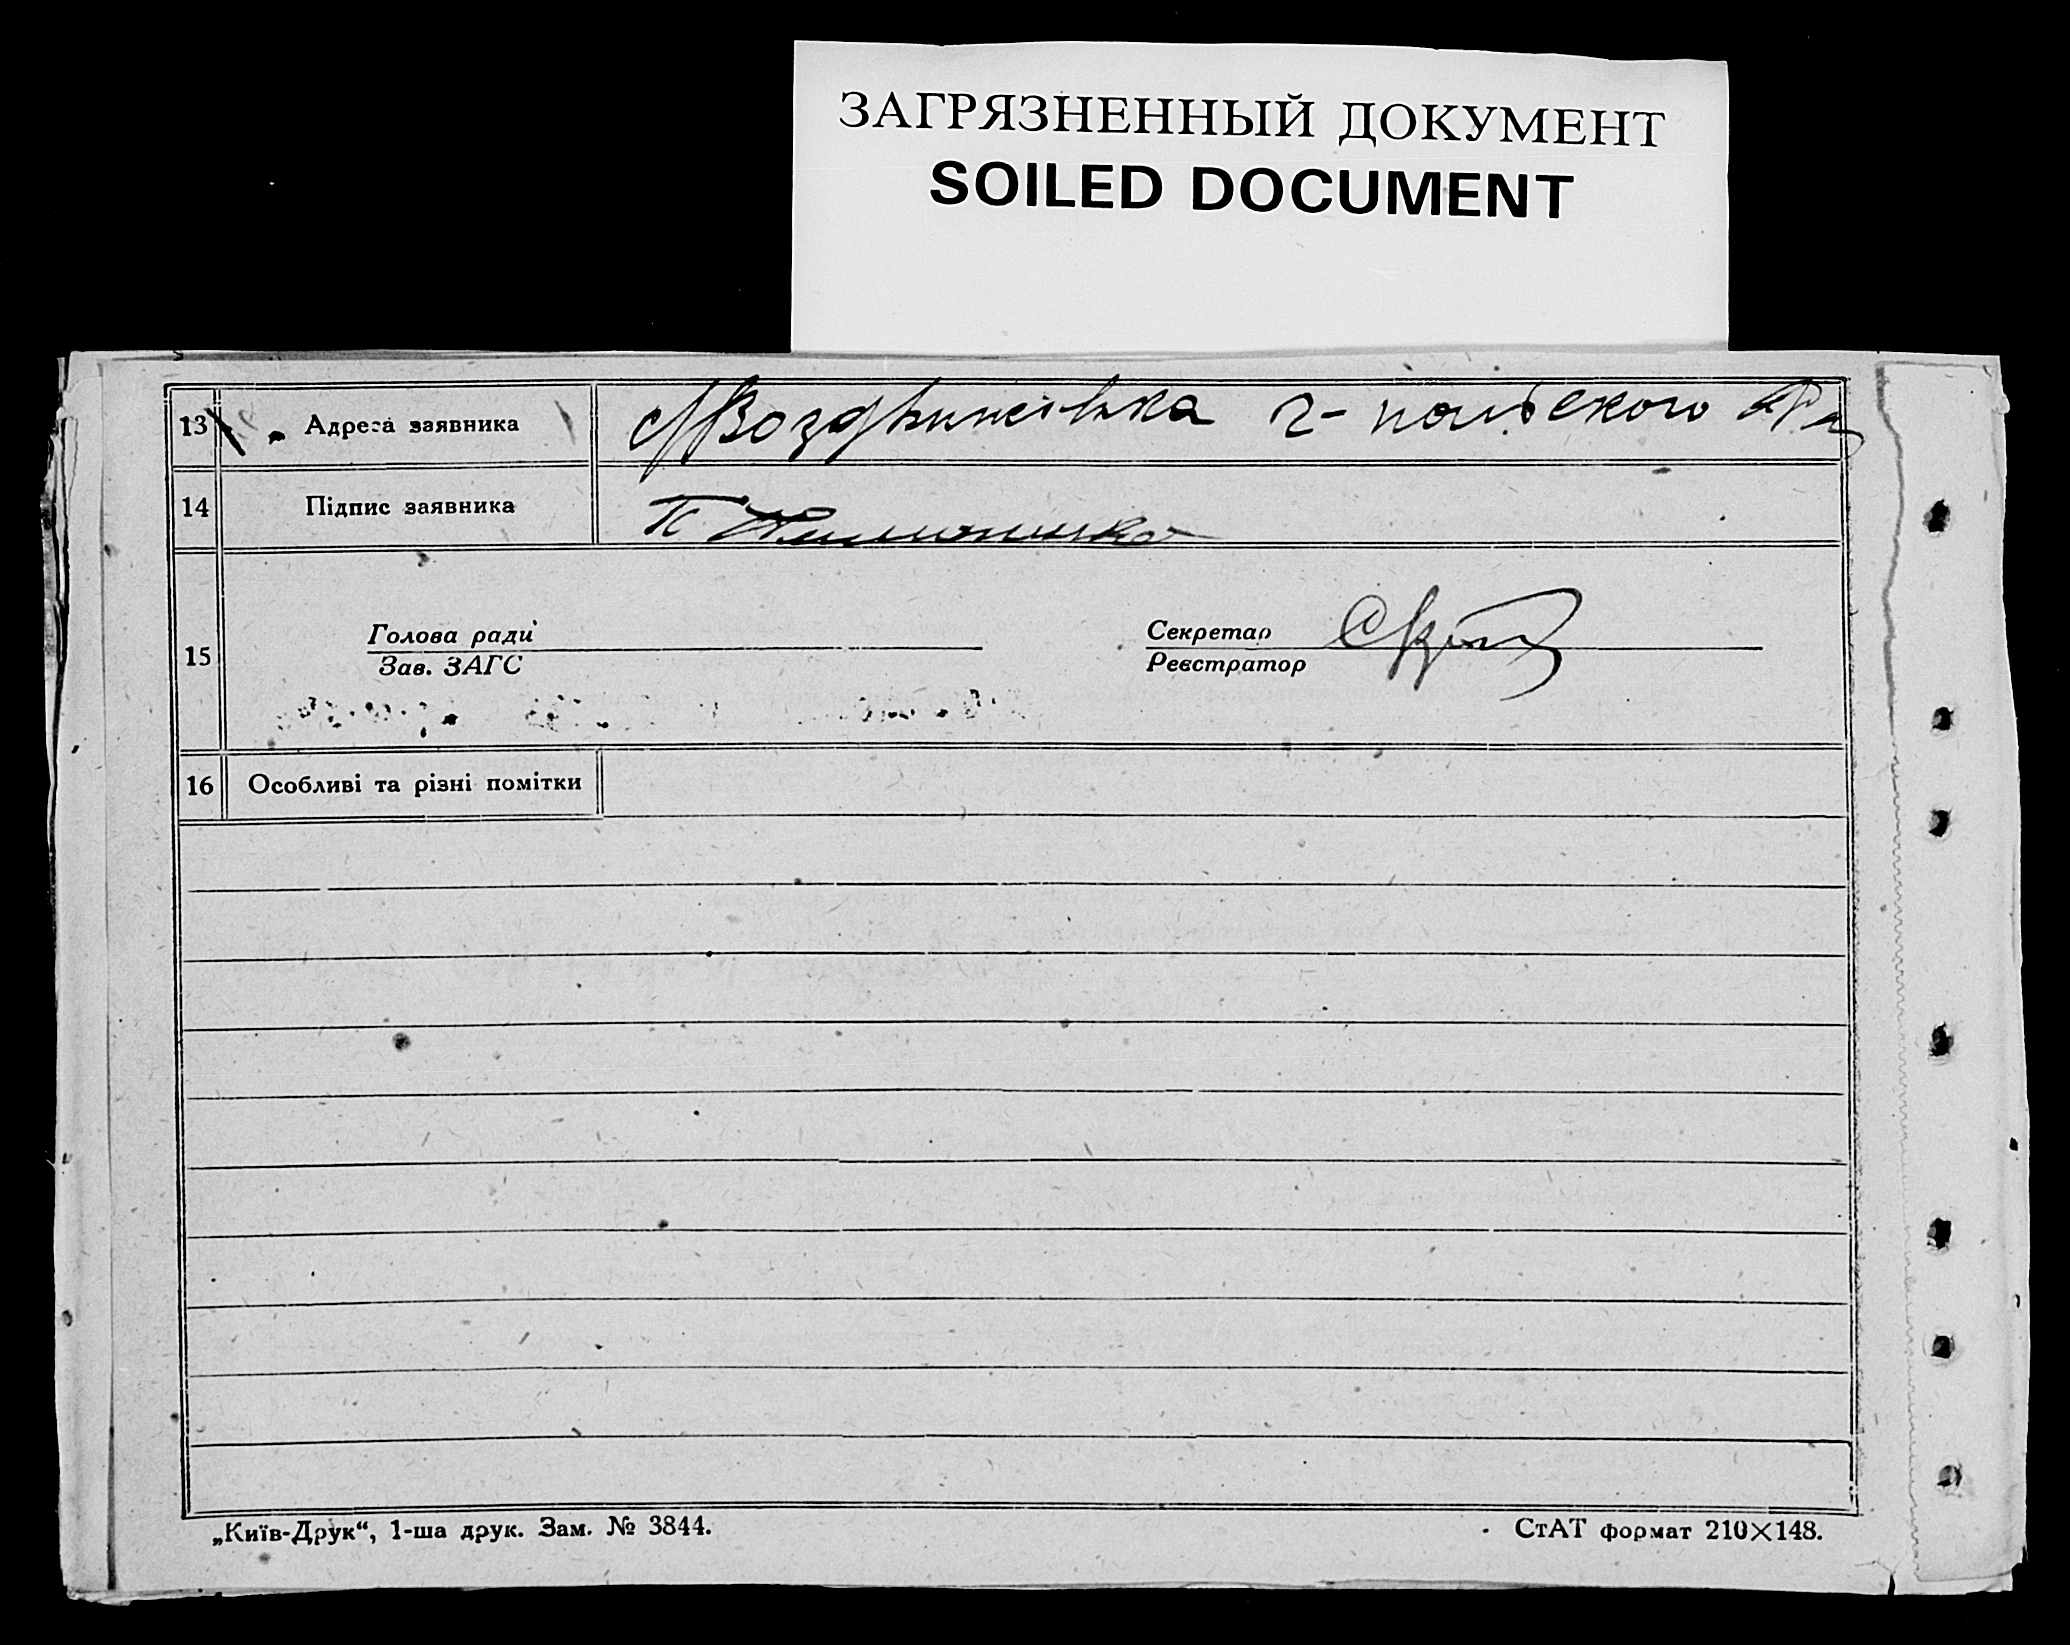 ЗАГРЯЗНЕННЫЙ ДОКУМЕНТ
SOILED DOCUMENT
13 Адреса заявника с Воздвижівка г-польского Р-н
14 Підпис заявника П
15 Голова ради Секретар
Зав. ЗАГС Реєстратор
16 Особливі та різні помітки
„Київ-Друк“, 1-ша друк. Зам. № 3844. СтАТ формат 210×148.